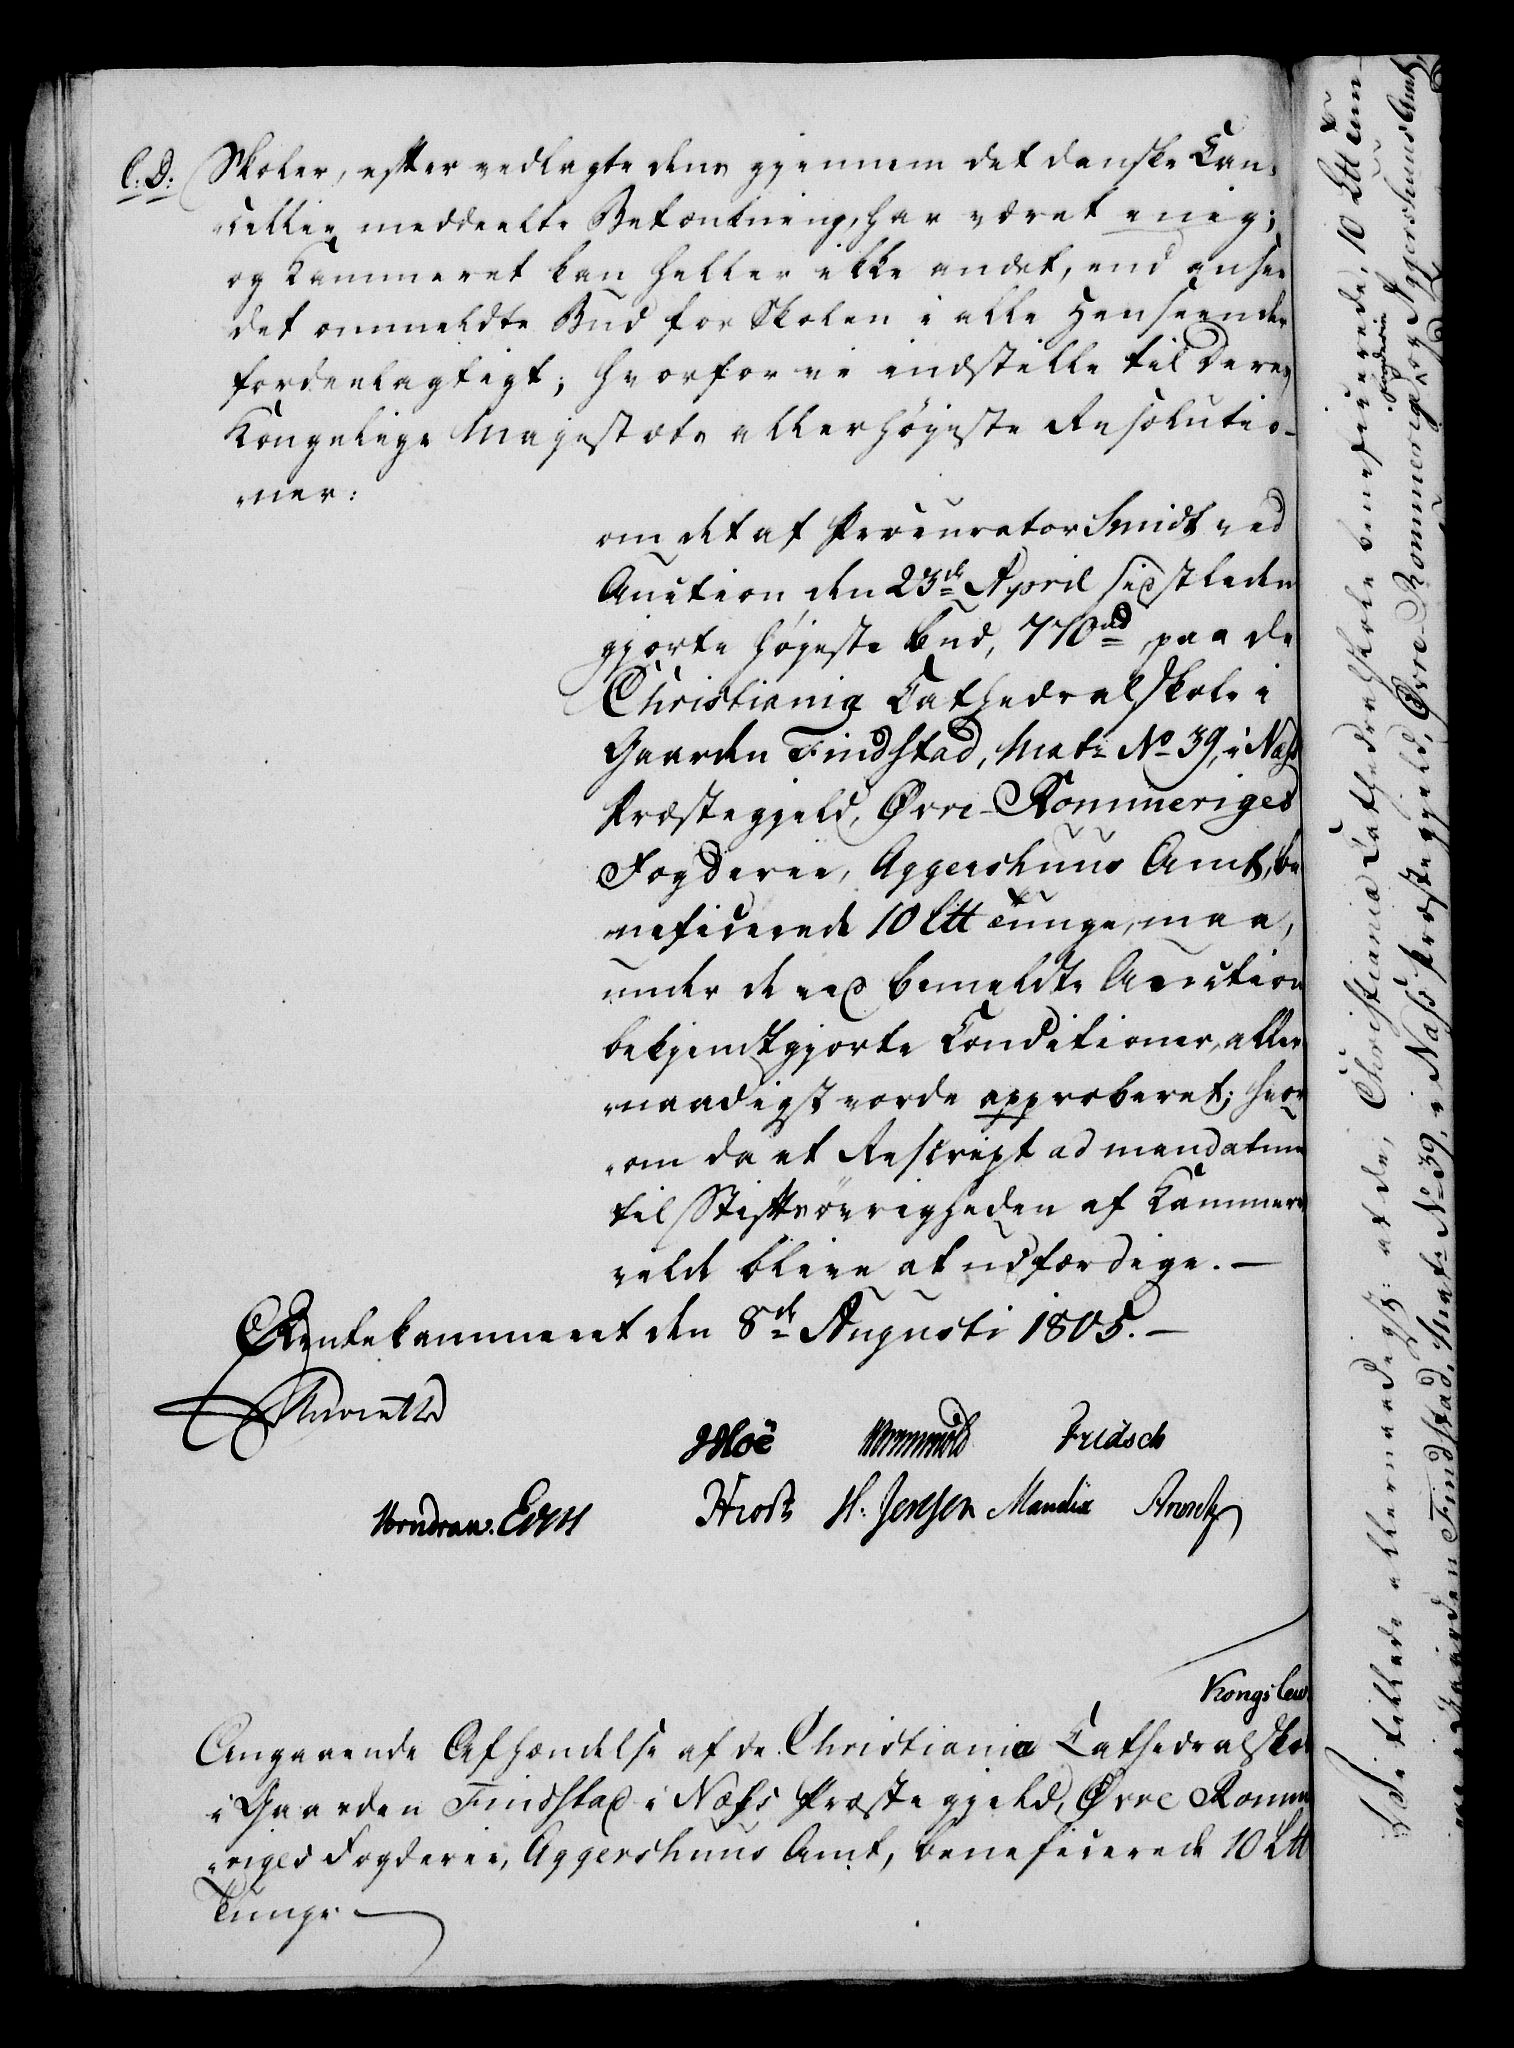 C: D:
Skoler, efter vedlagte dens gjennem det danske Can-
cellie meddeelte Betænkning, har været enig;
og Kammeret kan heller ikke andet, end ansee
det ommeldte Bud for Skolen i alle Henseender
fordeelagtigt; hvorfor vi indstille til Deres
Kongelige Majestæts allerhøjeste Resolutio-
ner:
om det af Procurator Smidt ved
Auction den 23de April sidstleden
gjorte højeste Bud, 770 rd, paa de
Christiania Cathedralskole i
Gaarden Findstad, Matr No 39, i Næss
Præstegjeld, Øvre-Rommeriges
Fogderie, Aggershuus Amt, be
neficerede 10 Ltt Tunge, maa,
under de ved bemeldte Auction
bekjendtgjorte Conditioner, aller
naadigst vorde approberet; hvor
om da et Rescript ad mandatum
til Stiftsøvrigheden af Kammeret
vilde blive at udfærdige. —
Rentekammeret den 8de Augusti 1805. —
Hoë Wormskiold Fridsch
Hiort H: Jensen Mandix
Kongslew
Angaaende Afhændelse af de Christiania Cathedralskole
i Gaarden Findstad i Næss Præstegjeld, Øvre Romme
riges Fogderie, Aggershuus Amt, beneficerede 10 Ltt
Tunge. —
Vi tillade allernaadigst: at de, Christiania Cathedralskole beneficerede, 10 Ltt Tun-
ge i Gaarden Findstad, Matr No 39, i Næss Præstegjeld, Øvre-Rommeriges Fogderie, Aggershuus Amt,